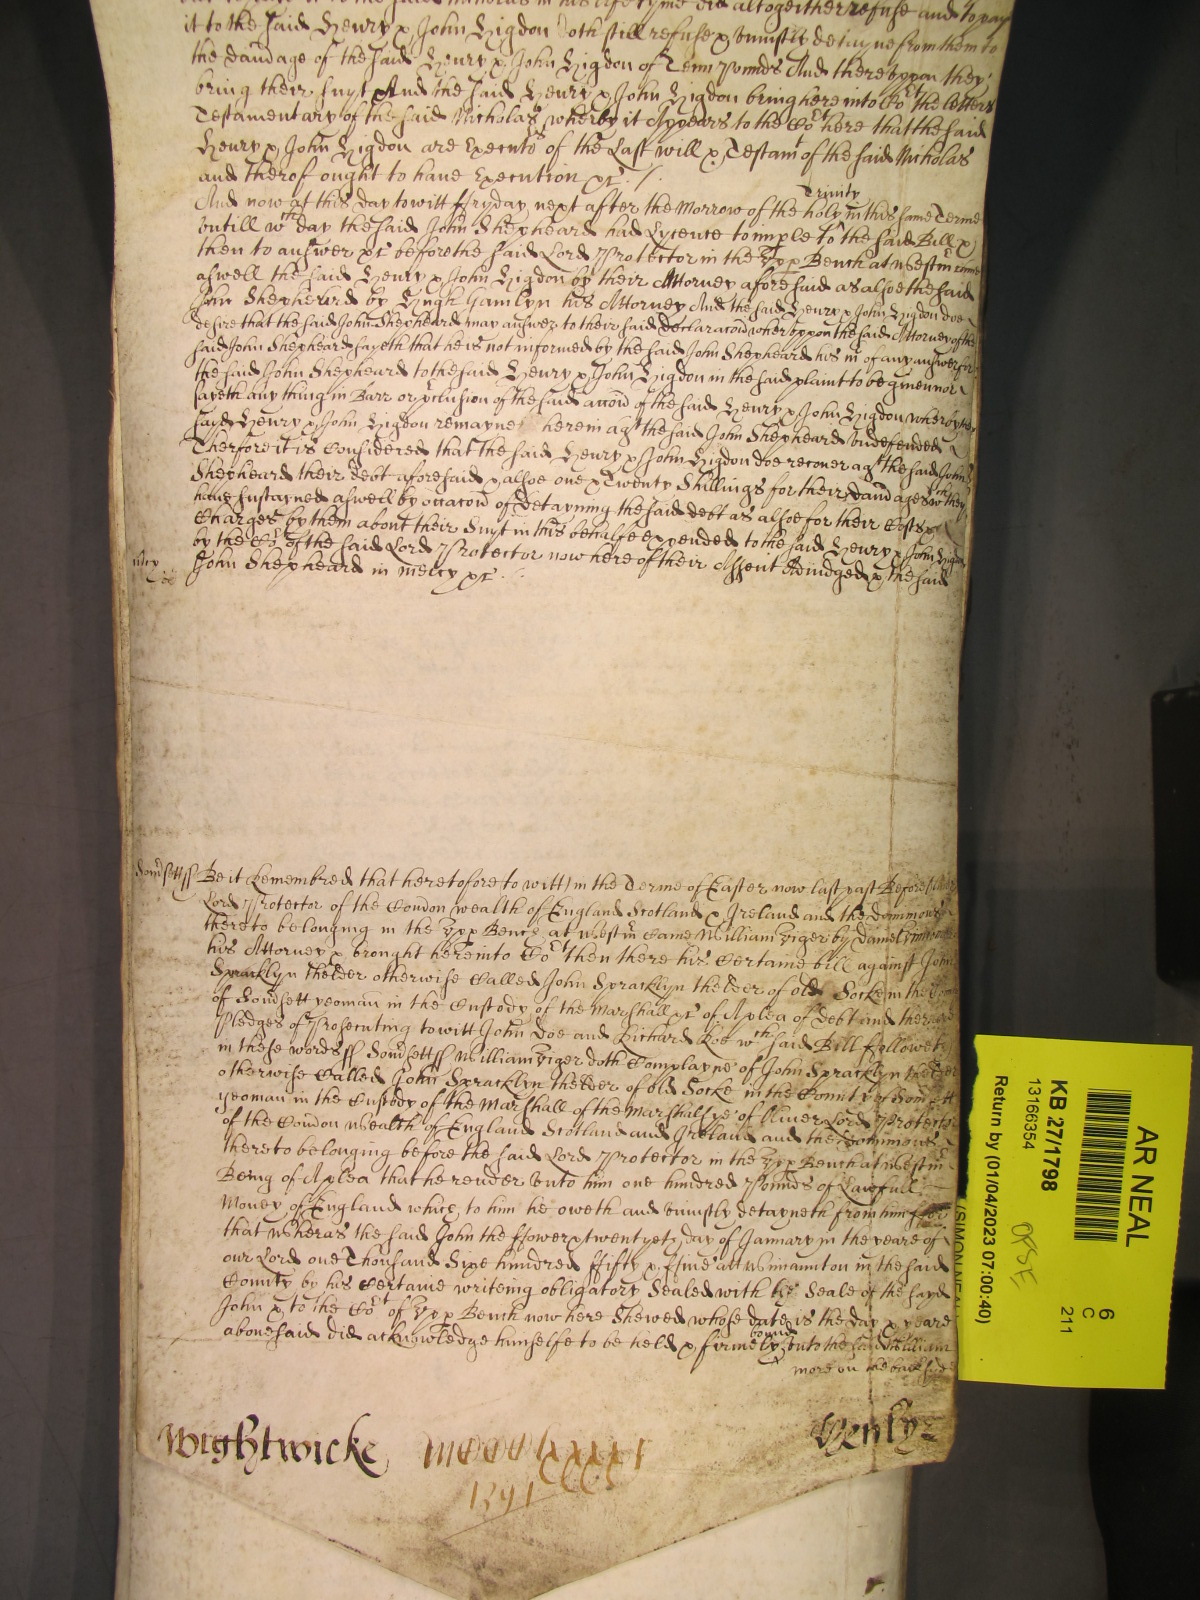 it to the said Henry & John Higdon doth still refuse & uniustly detayne from them to
the damage of the said Henry & John Higdon of Tenn pounds And thereuppon they
bring their suyt And the said Henry & John Higdon bring here into Cort the letters
Testamentary of the said Nicholas wherby it Appears to the Cort here that the said
Henry & John Higdon are Executrs of the Last will & Testamt of the said Nicholas
and therof ought to have Execution &c. /.
Trinity
And now at this day to witt ffryday next after the Morrow of the holy in this same Terme
untill wch day the said John Shepheard had Lycence to imple to the said Bill &
then to answer &c before the said Lord Protector in the Upp Bench at Westmr came
aswell the said Henry & John Higdon by their Attorney aforesaid as alsoe the said
John Shepheard by Hugh Gamlyn his Attorney And the said Henry & John Higdon doe
desire that the said John Shepheard may answer to their said declaracon wheruppon the said Attorney of the
said John Shepheard sayeth that he is not informed by the said John Shepheard his mr of any answer for
the said John Shepheard to the said Henry & John Higdon in the said plaint to be given nor
sayeth any thing in Barr or pclusion of the said accon of the said Henry & John Higdon wherby the
said Henry & John Higdon remayne herein agt the said John Shepheard undefended
Therfore it is Considered that the said Henry & John Higdon doe recover agt the said John
Shepheard their debt aforesaid & alsoe one & Twenty Shillings for their damages wch they
have sustayned aswell by occacon of detayning the said debt as alsoe for their Costs &
Charges by them about their suyt in this behalfe expended to the said Henry & John Higdon
by the Cort of the said Lord Protector now here of their Assent Adiudged & the said
mcy
John Shepheard in mercy &c.
Somsett ss Be it Remembred that heretofore (to witt) in the Terme of Easter now last past Before
Lord Protector of the Comon wealth of England Scotland & Ireland and the dominions
thereto belonging in the Upp Bench at Westmr Came William by Daniel
his Attorney & brought here into Cort then there his Certaine bill against John
Spracklyn thelder otherwise Called John Spracklyn thelder of old Socke in the
of Somsett yeoman in the Custody of the Marshall &c of A plea of debt And there are
Pledges of Prosecuting to witt John Doe and Richard Roe wch said Bill followeth
in these words ss Somsett ss William doth Complayne of John Spracklyn thelder
otherwise Called John Spracklyn thelder of old Socke in the County of Somsett
yeoman in the Custody of the Marshall of the Marshallsye of Oliver Lord Protector
of the Comon Wealth of England Scotland and Ireland and the Dominions
thereto belonging before the said Lord Protector in the Upp Bench at Westmr
Being of A plea that he render unto him one hundred Pounds of Lawfull
Money of England which to him he oweth and uniustly detayneth from him ffor
that wheras the said John the ffower & twentyeth day of January in the yeare of
our Lord one Thousand Sixe hundred ffifty & ffive att Wincaunton in the said
County by his Certaine writeing obligatory Sealed with the Seale of the sayd
John & to the Cort of Upp Bench now here Shewed whose date is the day & yeare
bound
abovesaid did acknowledge himselfe to be held & firmely unto the said William
more on the backside
Wightwicke
Henly
1391
AR NEAL
KB 27/1798
13166354
Return by (01/04/2023 07:00:40)
6
C
211
(SIMON NEAL